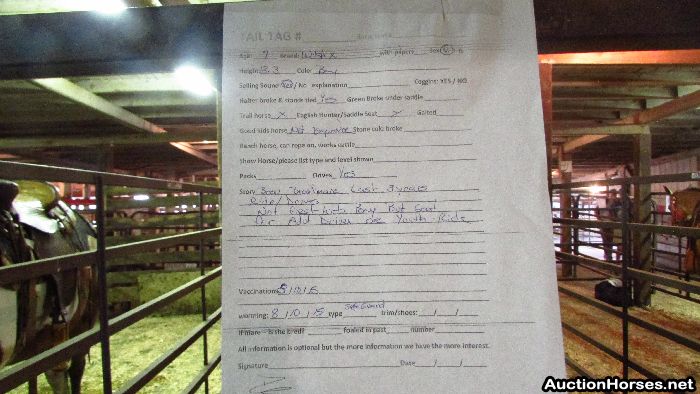 TAIL TAG #
Age: 7 Breed: Welsh X with papers Sex G
Height: 3 Color Bay
Selling Sound YES / No explanation Coggins: YES / NO
Halter broke & stands tied Yes Green Broke under saddle
Trail horse X English Hunter/Saddle Seat Gaited
Good kids horse Not Beginner Stone cold broke
Ranch horse, can rope on, works cattle
Show Horse/please list type and level shown
Packs Drives Yes
Story Been Last 3 years
Ride/Drive.
Not Great Kids Pony But Good
For Driver or Youth Ride
Vaccination: 5/10/15
worming: 8/10/15 type Safe Guard trim/shoes: / /
If mare – is she bred? foaled in past number
All information is optional but the more information we have the more interest.
Signature Date / /
AuctionHorses.net